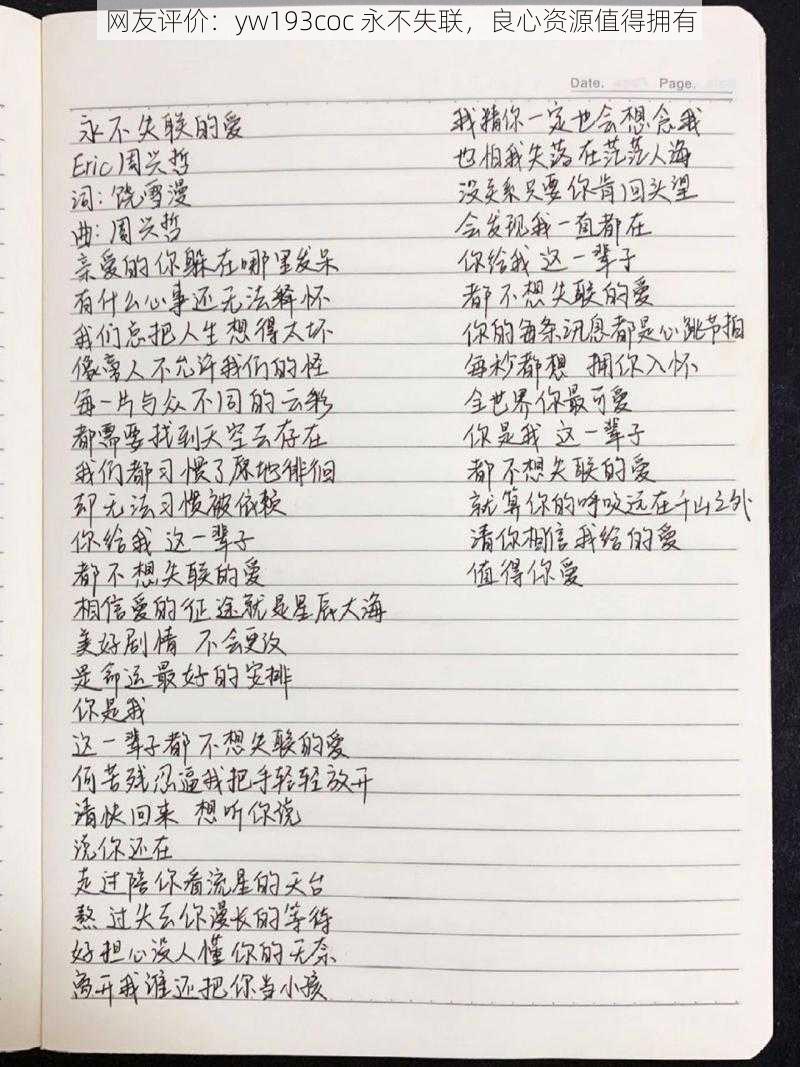 网友评价：yw193coc 永不失联，良心资源值得拥有
Date. Page.
永不失联的爱
Eric周兴哲
词：饶雪漫
曲：周兴哲
亲爱的你躲在哪里发呆
有什么心事还无法释怀
我们总把人生想得太坏
像旁人不允许我们的怪
每一片与众不同的云彩
都需要找到天空去存在
我们都习惯了原地徘徊
却无法习惯被依赖
你给我 这一辈子
都不想失联的爱
相信爱的征途就是星辰大海
美好剧情 不会更改
是命运最好的安排
你是我
这一辈子都不想失联的爱
何苦残忍逼我把手轻轻放开
请快回来 想听你说
说你还在
走过陪你看流星的天台
熬过失去你漫长的等待
好担心没人懂你的无奈
离开我谁还把你当小孩
我猜你一定也会想念我
也怕我失落在茫茫人海
没关系只要你肯回头望
会发现我一直都在
你给我 这一辈子
都不想失联的爱
你的每条讯息都是心跳节拍
每秒都想 拥你入怀
全世界你最可爱
你是我 这一辈子
都不想失联的爱
就算你的呼吸远在千山之外
请你相信我给的爱
值得你爱